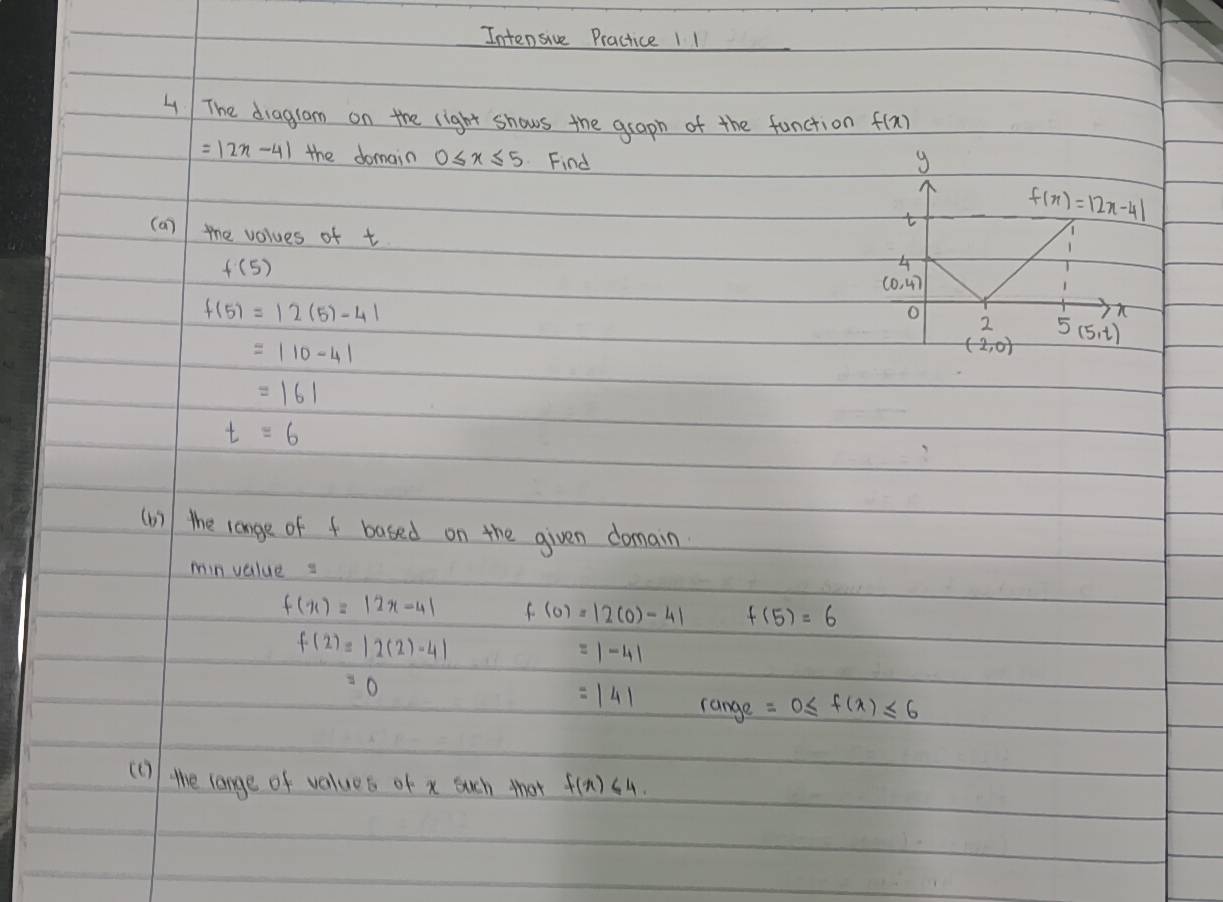 Intensive Practice 1.1
4. The diagram on the right shows the graph of the function f(x)
= |2x - 4| the domain 0 ≤ x ≤ 5. Find
y
f(x) = |2x - 4|
t
4
(0,4)
0
2
(2,0)
5 (5,t)
x
(a) the values of t
f(5)
f(5) = |2(5) - 4|
= |10 - 4|
= |6|
t = 6
(b) the range of f based on the given domain.
min value =
f(x) = |2x - 4| f(0) = |2(0) - 4| f(5) = 6
f(2) = |2(2) - 4| = |-4|
= 0 = |4| range = 0 ≤ f(x) ≤ 6
(c) the range of values of x such that f(x) ≤ 4.